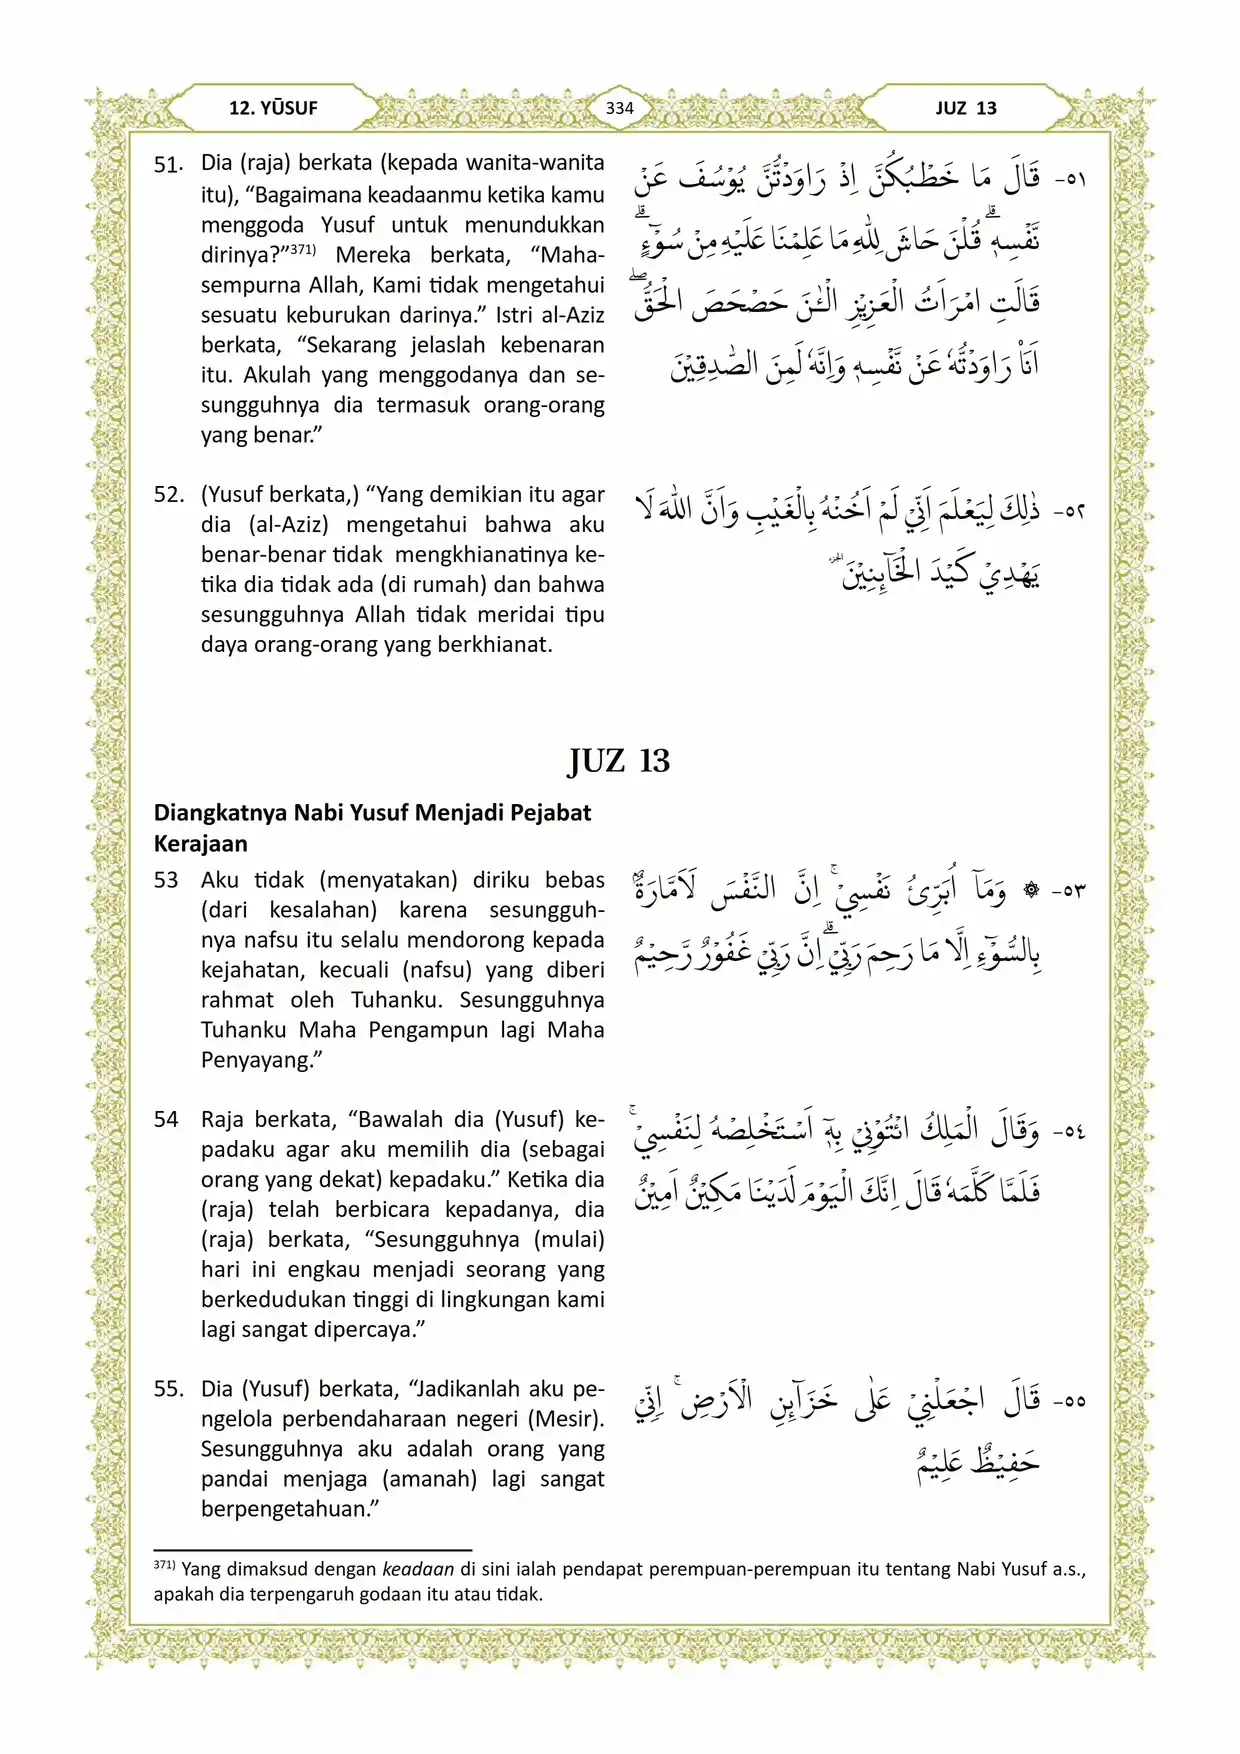 12. YŪSUF
334
JUZ 13
51. Dia (raja) berkata (kepada wanita-wanita
itu), “Bagaimana keadaanmu ketika kamu
menggoda Yusuf untuk menundukkan
dirinya?”³⁷¹⁾ Mereka berkata, “Maha-
sempurna Allah, Kami tidak mengetahui
sesuatu keburukan darinya.” Istri al-Aziz
berkata, “Sekarang jelaslah kebenaran
itu. Akulah yang menggodanya dan se-
sungguhnya dia termasuk orang-orang
yang benar.”
٥١- قَالَ مَا خَطْبُكُنَّ اِذْ رَاوَدْتُّنَّ يُوْسُفَ عَنْ
نَّفْسِهٖۗ قُلْنَ حَاشَ لِلّٰهِ مَا عَلِمْنَا عَلَيْهِ مِنْ سُوْۤءٍۗ
قَالَتِ امْرَاَتُ الْعَزِيْزِ الْـٰٔنَ حَصْحَصَ الْحَقُّۖ
اَنَا۠ رَاوَدْتُّهٗ عَنْ نَّفْسِهٖ وَاِنَّهٗ لَمِنَ الصّٰدِقِيْنَ
52. (Yusuf berkata,) “Yang demikian itu agar
dia (al-Aziz) mengetahui bahwa aku
benar-benar tidak mengkhianatinya ke-
tika dia tidak ada (di rumah) dan bahwa
sesungguhnya Allah tidak meridai tipu
daya orang-orang yang berkhianat.
٥٢- ذٰلِكَ لِيَعْلَمَ اَنِّيْ لَمْ اَخُنْهُ بِالْغَيْبِ وَاَنَّ اللّٰهَ لَا
يَهْدِيْ كَيْدَ الْخَاۤىِٕنِيْنَ ۔
JUZ 13
Diangkatnya Nabi Yusuf Menjadi Pejabat
Kerajaan
53 Aku tidak (menyatakan) diriku bebas
(dari kesalahan) karena sesungguh-
nya nafsu itu selalu mendorong kepada
kejahatan, kecuali (nafsu) yang diberi
rahmat oleh Tuhanku. Sesungguhnya
Tuhanku Maha Pengampun lagi Maha
Penyayang.”
٥٣- ۞ وَمَآ اُبَرِّئُ نَفْسِيْۚ اِنَّ النَّفْسَ لَاَمَّارَةٌ ۢ
بِالسُّوْۤءِ اِلَّا مَا رَحِمَ رَبِّيْۗ اِنَّ رَبِّيْ غَفُوْرٌ رَّحِيْمٌ
54 Raja berkata, “Bawalah dia (Yusuf) ke-
padaku agar aku memilih dia (sebagai
orang yang dekat) kepadaku.” Ketika dia
(raja) telah berbicara kepadanya, dia
(raja) berkata, “Sesungguhnya (mulai)
hari ini engkau menjadi seorang yang
berkedudukan tinggi di lingkungan kami
lagi sangat dipercaya.”
٥٤- وَقَالَ الْمَلِكُ ائْتُوْنِيْ بِهٖٓ اَسْتَخْلِصْهُ لِنَفْسِيْۚ
فَلَمَّا كَلَّمَهٗ قَالَ اِنَّكَ الْيَوْمَ لَدَيْنَا مَكِيْنٌ اَمِيْنٌ
55. Dia (Yusuf) berkata, “Jadikanlah aku pe-
ngelola perbendaharaan negeri (Mesir).
Sesungguhnya aku adalah orang yang
pandai menjaga (amanah) lagi sangat
berpengetahuan.”
٥٥- قَالَ اجْعَلْنِيْ عَلٰى خَزَاۤىِٕنِ الْاَرْضِۚ اِنِّيْ
حَفِيْظٌ عَلِيْمٌ
³⁷¹⁾ Yang dimaksud dengan keadaan di sini ialah pendapat perempuan-perempuan itu tentang Nabi Yusuf a.s.,
apakah dia terpengaruh godaan itu atau tidak.